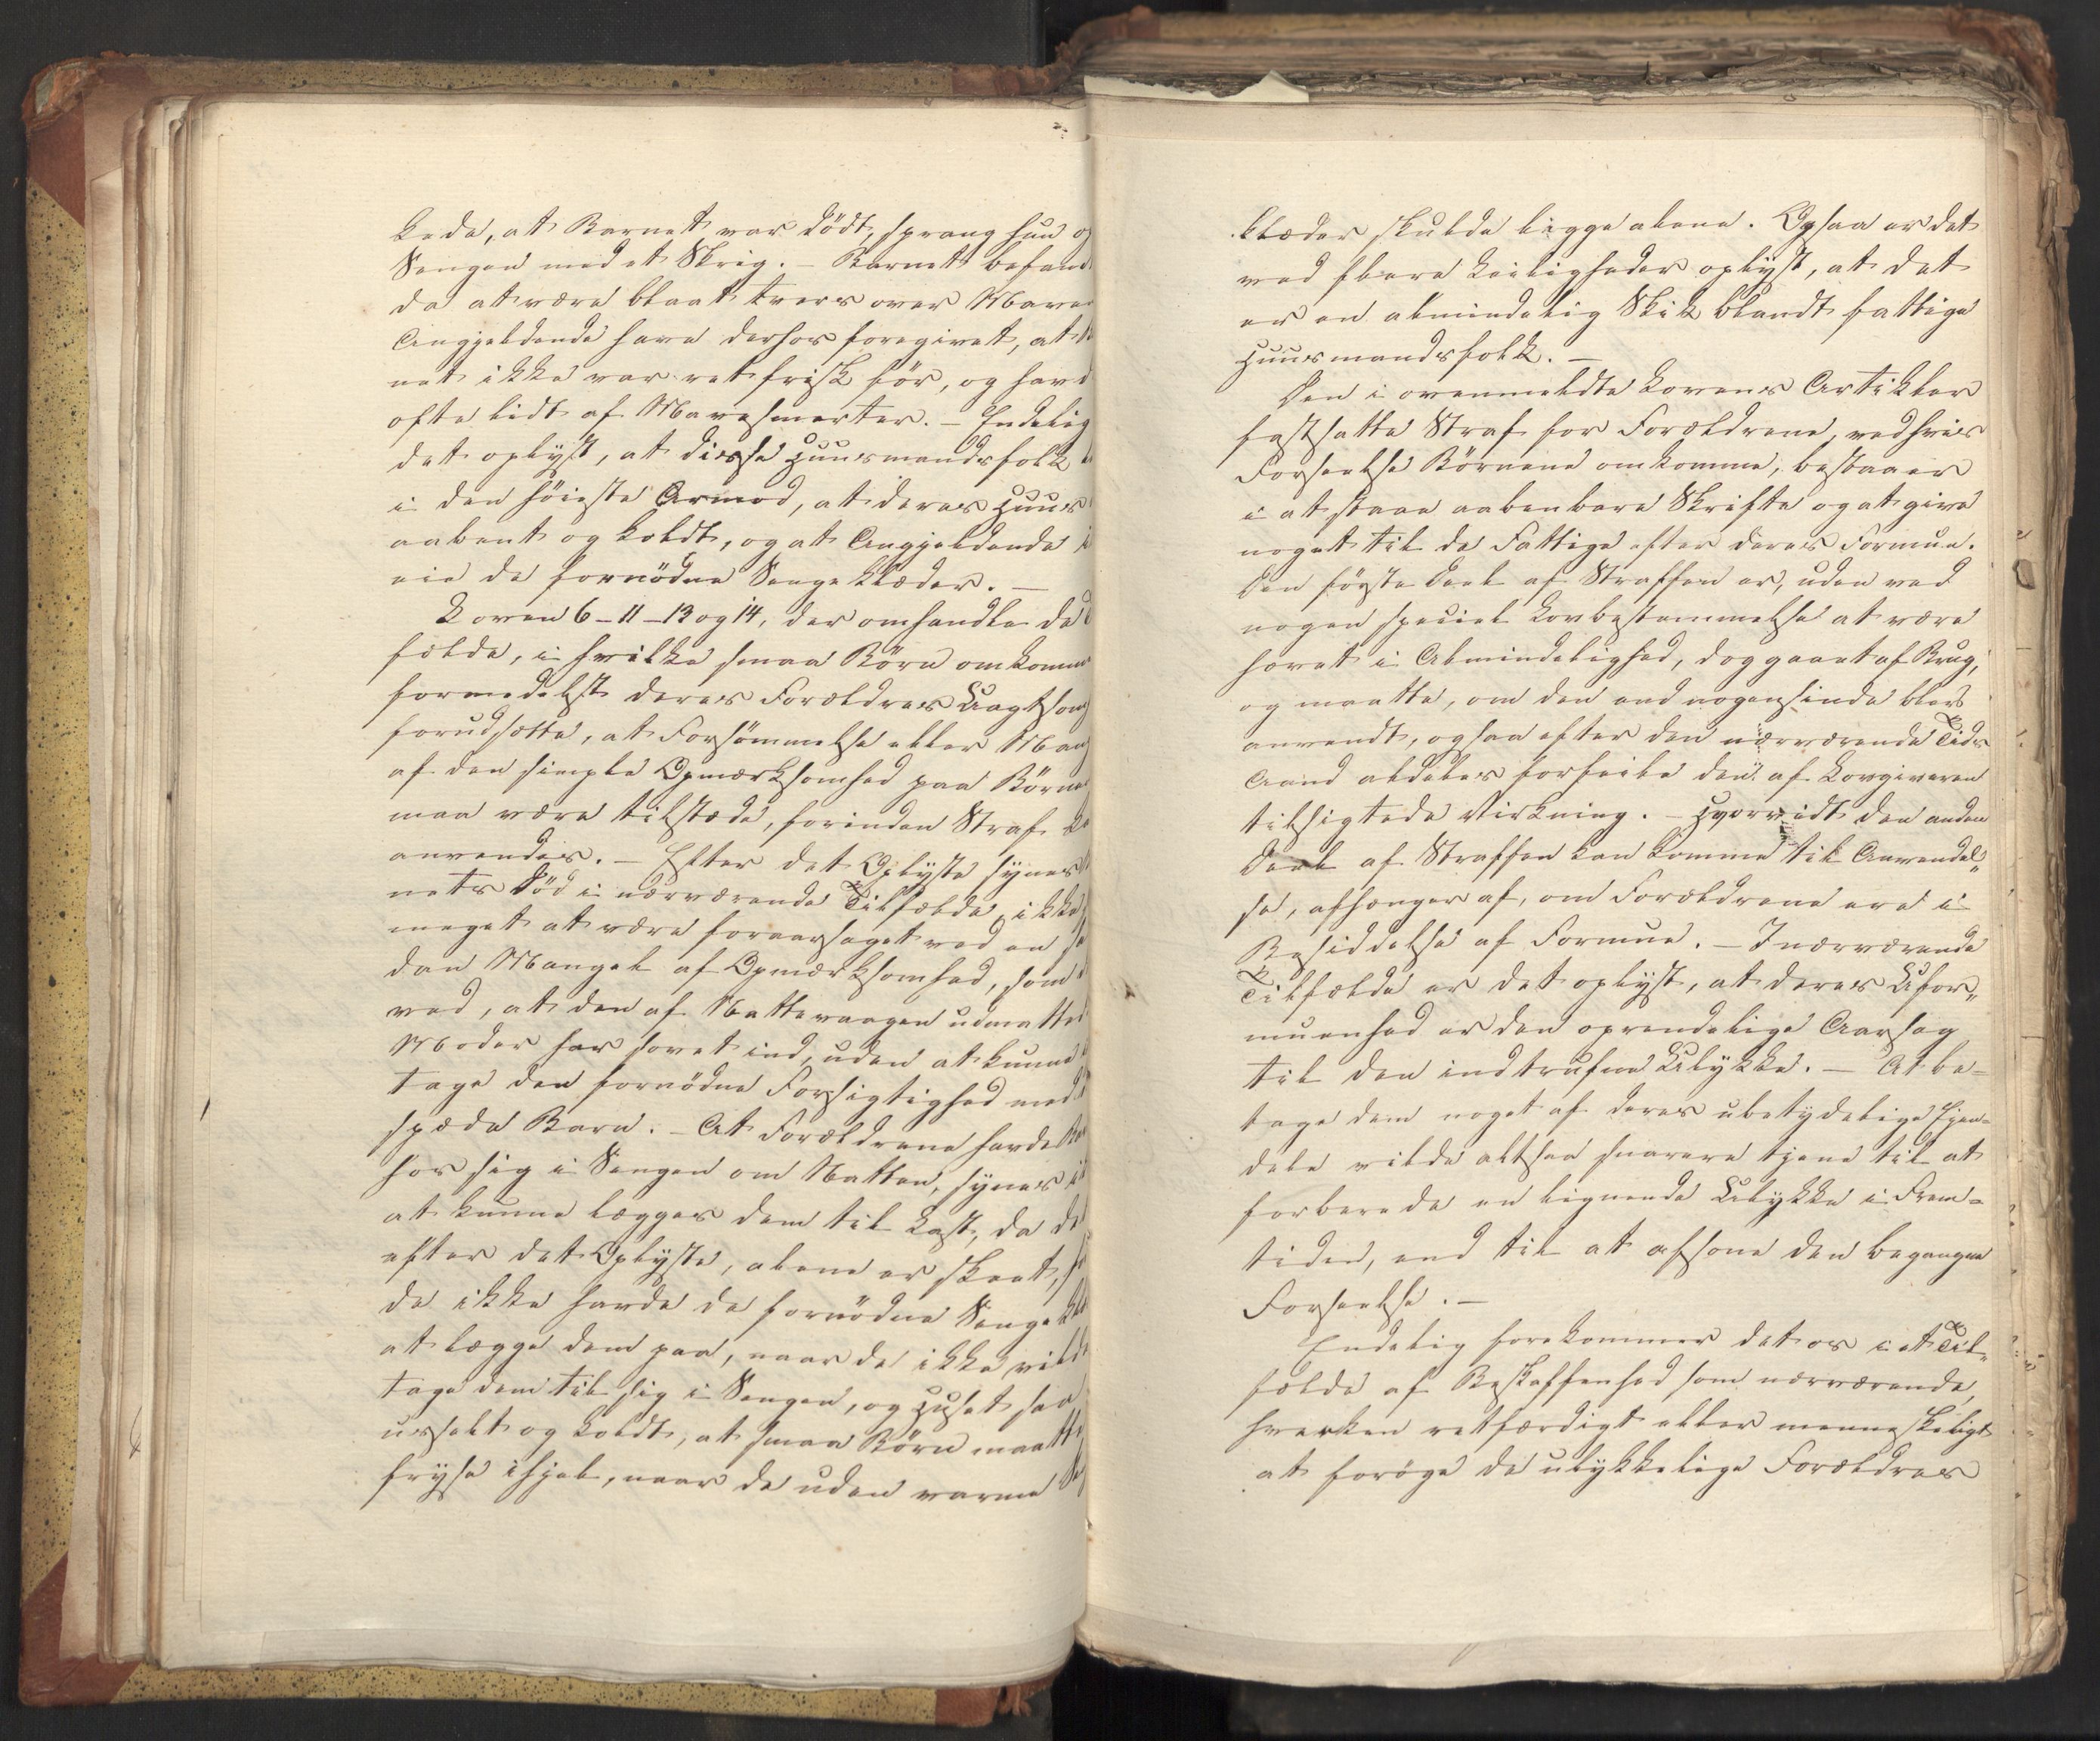 kede, at Barnet var dödt, sprang hun o
Sengen med et Skrig. – Barnet befand
da at være blaat tvers over Mave
Angjeldende have derhos foregivet, at
net ikke var ret frisk för, og havd
ofte lidt af Mavesmerter. – Endelig
det oplyst, at disse Huusmandsfolk
i den höieste Armod, at deres Huus
aabent og koldt, og at Angjeldende
eie de fornödne Sengeklæder. –
Loven 6–11–13 og 14, der omhandle de
fælde, i hvilke smaa Börn omkomme
formedelst deres Forældres Uagtsom
forudsætte, at Forsömmelse eller Man
af den simple Opmærksomhed paa Börne
maa være tilstæde, forinden Straf ka
anvendes. – Efter det Oplyste synes
nets Död i nærværende Tilfælde, ikke
meget at være foraarsaget ved en saa
dan Mangel af Opmærksomhed, som
ved, at den af Nattevaagen udmattede
Moder har sovet ind, uden at kunne
tage den fornödne Forsigtighed med
spæde Barn. – At Forældrene havde
hos sig i Sengen om Natten, synes
at kunne lægges dem til Last, da det
efter det Oplyste, alene er skeet,
de ikke havde de fornödne Sengeklæ
at lægge dem paa, naar de ikke vilde
tage dem til sig i Sengen, og Huset saa
usselt og koldt, at smaa Börn maatte
fryse ihjel, naar de uden varme
klæder skulde ligge alene. Ogsaa er det
ved flere Leiligheder oplyst, at det
er en almindelig Skik blandt fattige
Huusmandsfolk. –
Den i ovenmeldte Lovens Artikler
fastsatte Straf for Forældrene, ved hvis
Forseelse Börnene omkomme, bestaaer
i at staae aabenbare Skrifte og at give
noget til de Fattige efter deres Formue.
Den förste Deel af Straffen er, uden ved
nogen speciel Lovbestemmelse at være
hævet i Almindelighed, dog gaaet af Brug,
og maatte, om den end nogensinde blev
anvendt, ogsaa efter den nærværende Tids
Aand aldeles forfeile den af Lovgiveren
tilsigtede Virkning. – Hvorvidt den anden
Deel af Straffen kan komme til Anvendel„
se, afhænger af, om Forældrene ere i
Besiddelse af Formue. – I nærværende
Tilfælde er det oplyst, at deres Ufor„
muenhed er den oprendelige Aarsag
til den indtrufne Ulykke. – At be-
tage dem noget af deres ubetydelige Eien-
dele vilde altsaa snarere tjene til at
forberede en lignende Ulykke i Frem-
tiden, end til at afsone den begangne
Forseelse. –
Endelig forekommer det os i et Til„
fælde af Beskaffenhed som nærværende,
hverken retfærdigt eller menneskeligt
at foröge de ulykkelige Forældres